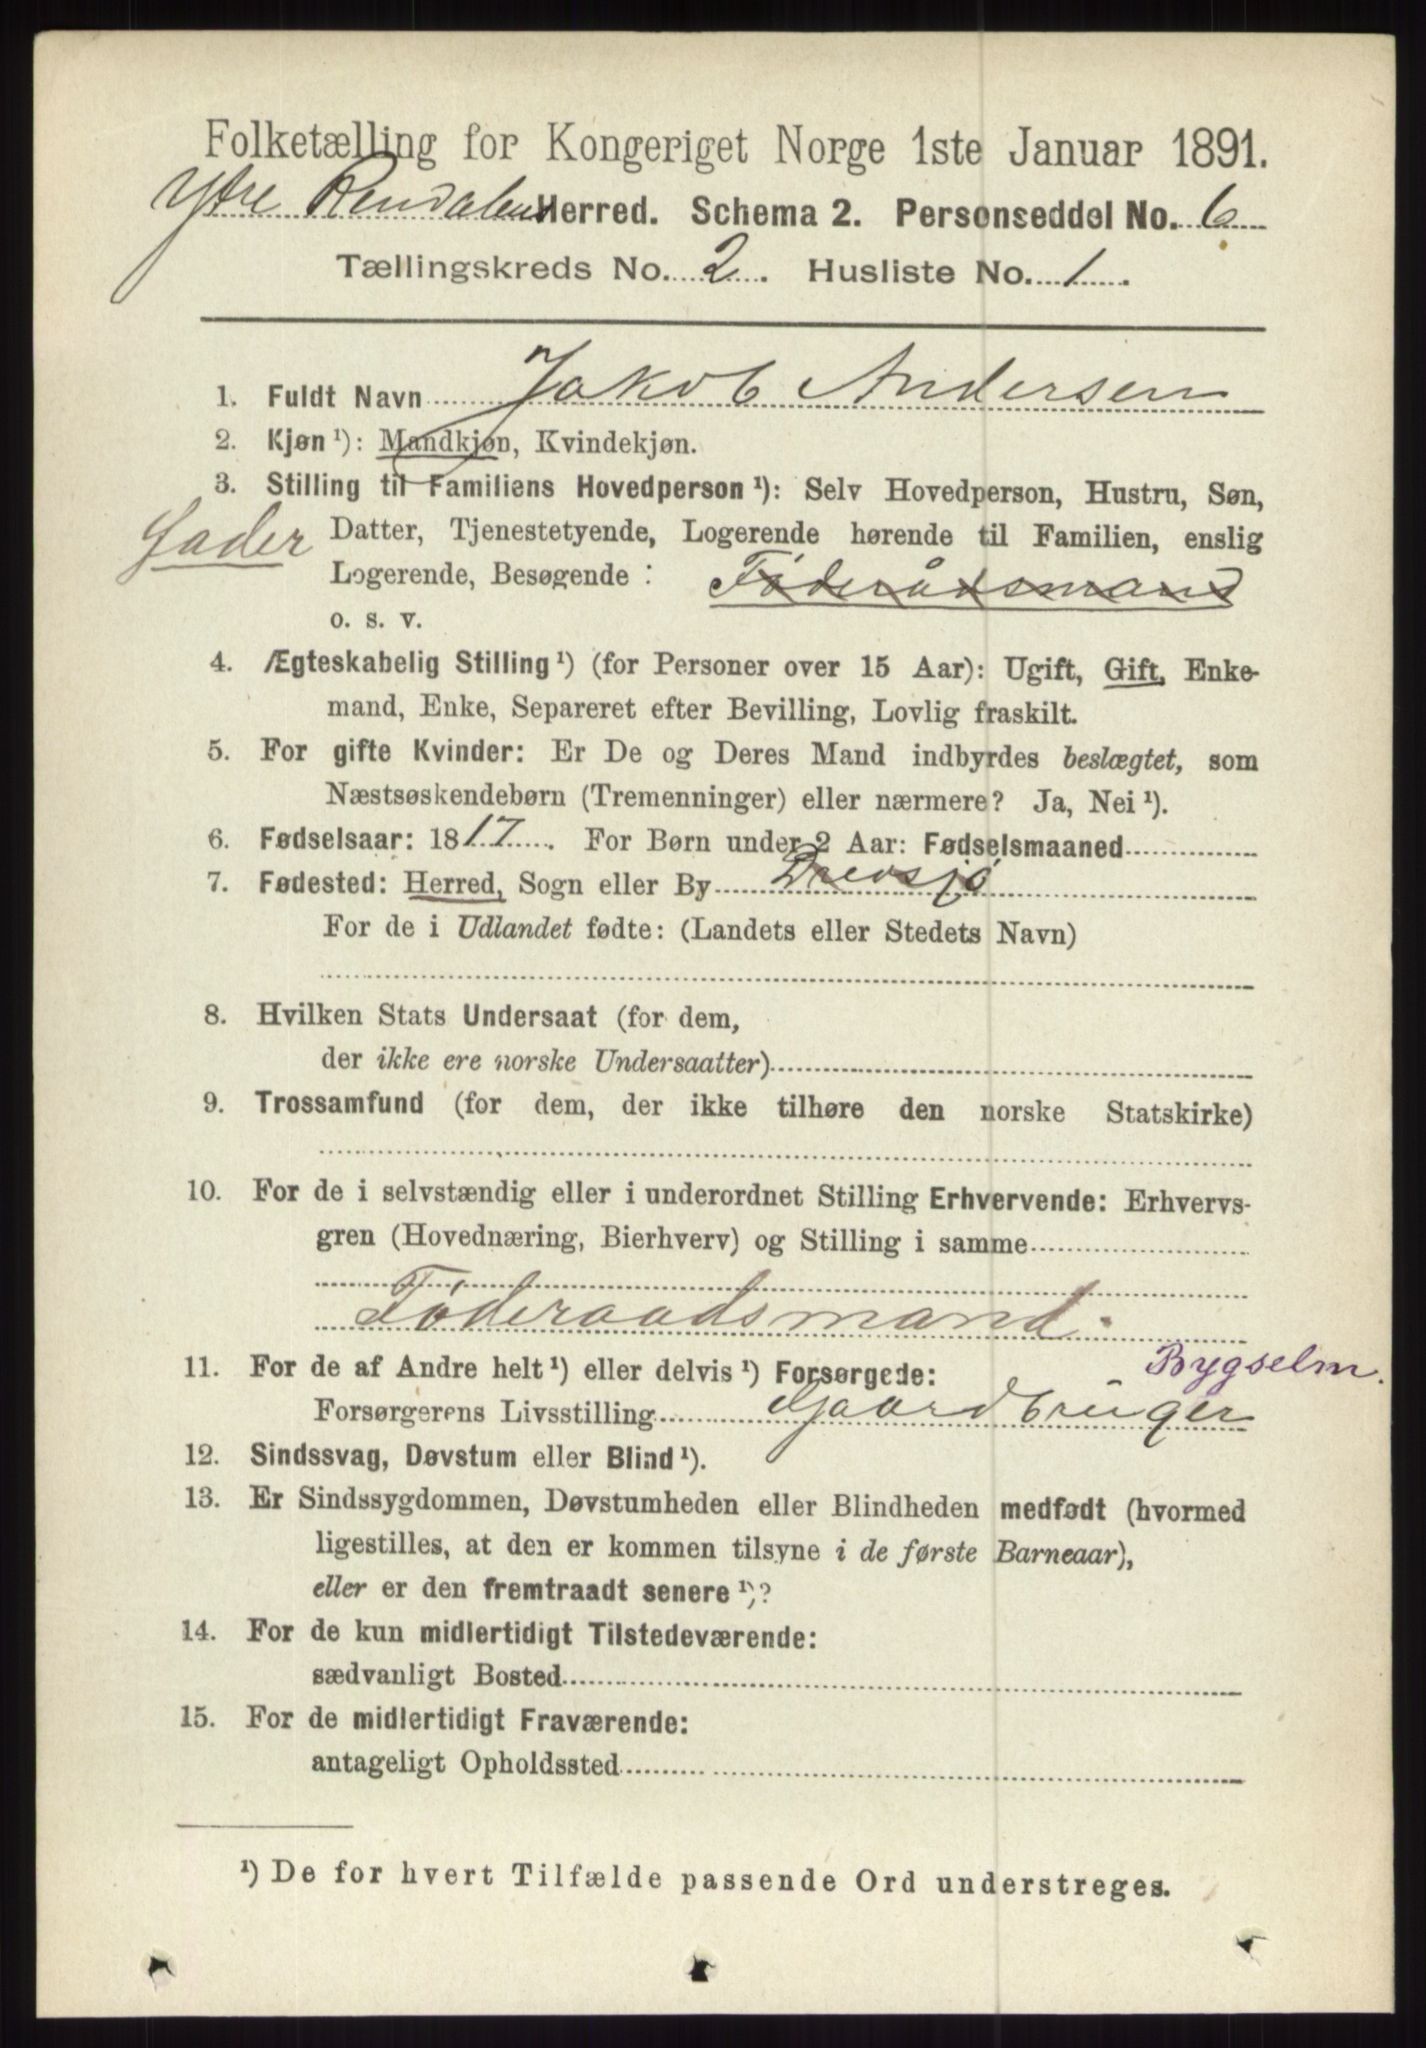 Folketælling for Kongeriget Norge 1ste Januar 1891.
Ytre Rendalens Herred. Schema 2. Personseddel No. 6
Tællingskreds No. 2. Husliste No. 1.
1. Fuldt Navn Jakob Andersen
2. Kjøn ¹): Mandkjøn, Kvindekjøn.
3. Stilling til Familiens Hovedperson ¹): Selv Hovedperson, Hustru, Søn,
Fader Datter, Tjenestetyende, Logerende hørende til Familien, enslig
Logerende, Besøgende : Føderådsmand
o. s. v.
4. Ægteskabelig Stilling ¹) (for Personer over 15 Aar): Ugift, Gift, Enke-
mand, Enke, Separeret efter Bevilling, Lovlig fraskilt.
5. For gifte Kvinder: Er De og Deres Mand indbyrdes beslægtet, som
Næstsøskendebørn (Tremenninger) eller nærmere? Ja, Nei ¹).
6. Fødselsaar: 1817. For Børn under 2 Aar: Fødselsmaaned
7. Fødested: Herred, Sogn eller By Drevsjø
For de i Udlandet fødte: (Landets eller Stedets Navn)
8. Hvilken Stats Undersaat (for dem,
der ikke ere norske Undersaatter)
9. Trossamfund (for dem, der ikke tilhøre den norske Statskirke)
10. For de i selvstændig eller i underordnet Stilling Erhvervende: Erhvervs-
gren (Hovednæring, Bierhverv) og Stilling i samme
Føderaadsmand.
11. For de af Andre helt ¹) eller delvis ¹) Forsørgede: Bygselm.
Forsørgerens Livsstilling Gaardbruger
12. Sindssvag, Døvstum eller Blind ¹).
13. Er Sindssygdommen, Døvstumheden eller Blindheden medfødt (hvormed
ligestilles, at den er kommen tilsyne i de første Barneaar),
eller er den fremtraadt senere ¹)?
14. For de kun midlertidigt Tilstedeværende:
sædvanligt Bosted
15. For de midlertidigt Fraværende:
antageligt Opholdssted
¹) De for hvert Tilfælde passende Ord understreges.